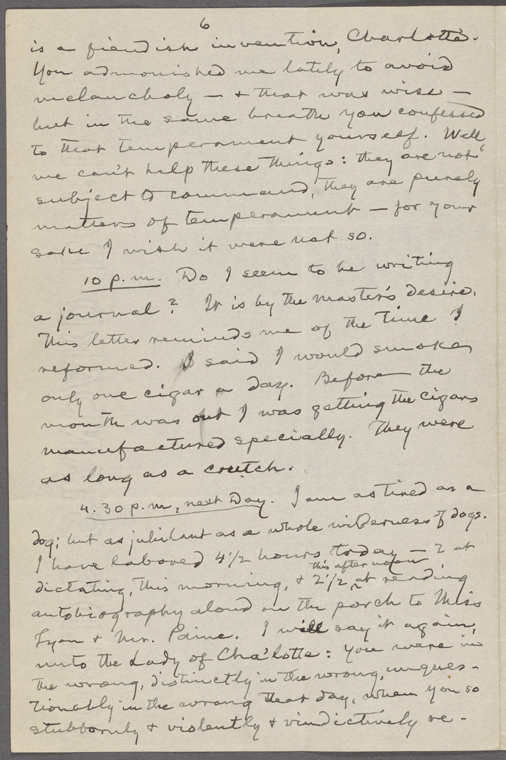 6
is a fiendish invention, Charlotte.
You admonished me lately to avoid
melancholy — & that was wise —
but in the same breath you confessed
to that temperament yourself. Well,
we can't help these things: they are not
subject to command, they are purely
matters of temperament — for your
sake I wish it were not so.
10 p.m. Do I seem to be writing
a journal? It is by the master's desire.
This letter reminds me of the time I
reformed. I said I would smoke
only one cigar a day. Before the
month was out I was getting the cigars
manufactured specially. They were
as long as a crutch.
4.30 p.m., next day. I am as tired as a
dog; but as jubilant as a whole wilderness of dogs.
I have labored 4 1/2 hours today — 2 at
dictating, this morning, & 2 1/2 this afternoon at reading
autobiography aloud on the porch to Miss
Lyon & Mr. Paine. I will say it again,
unto the Lady of Cha'lotte: you were in
the wrong, distinctly in the wrong, unques-
tionably in the wrong that day, when you so
stubbornly & violently & vindictively re-